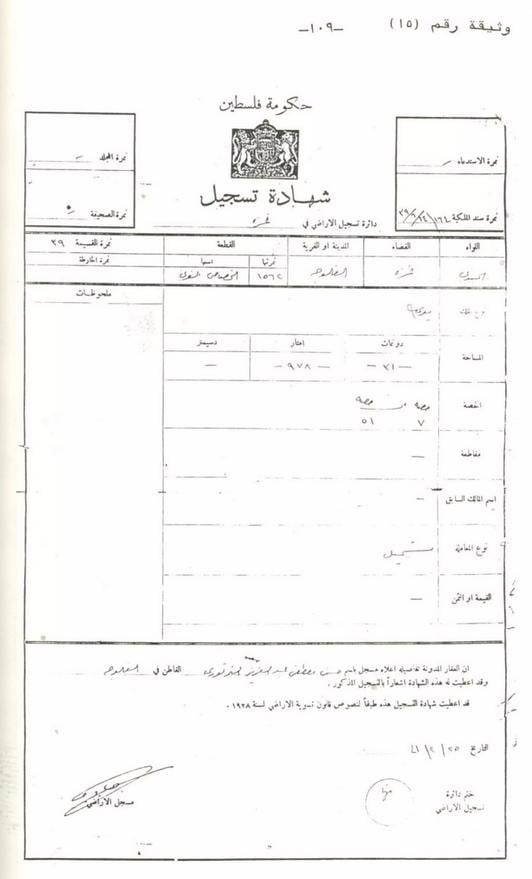 وثيقة رقم (١٥) —١٠٩—
حكومة فلسطين
شهادة تسجيل
دائرة تسجيل الاراضي في غزه
نمرة المجلد
نمرة الصحيفة
نمرة الاستدعاء
نمرة سند الملكية
اللواء القضاء المدينة او القرية القطعة نمرة القسيمة ٣٩
نمرتها اسمها نمرة الخارطة
غزه الفلوجه ١٥٦٢
ملحوظات
نوع الملك
المساحة دونمات امتار دسيمتر
— ٣١ — — ٩٧٨ — —
الحصة حصه من حصه
٧ ٥١
مقاطعة —
اسم المالك السابق —
نوع المعاملة تسجيل
القيمة او الثمن —
ان العقار المدونة تفاصيله اعلاه مسجل باسم حسن مصطفى عبد العزيز القاطن في الفلوجه
وقد اعطيت له هذه الشهادة اشعاراً بالتسجيل المذكور .
قد اعطيت شهادة التسجيل هذه طبقاً لنصوص قانون تسوية الاراضي لسنة ١٩٢٨ .
التاريخ ٤١/٢/٢٥
مسجل الاراضي
ختم دائرة
تسجيل الاراضي